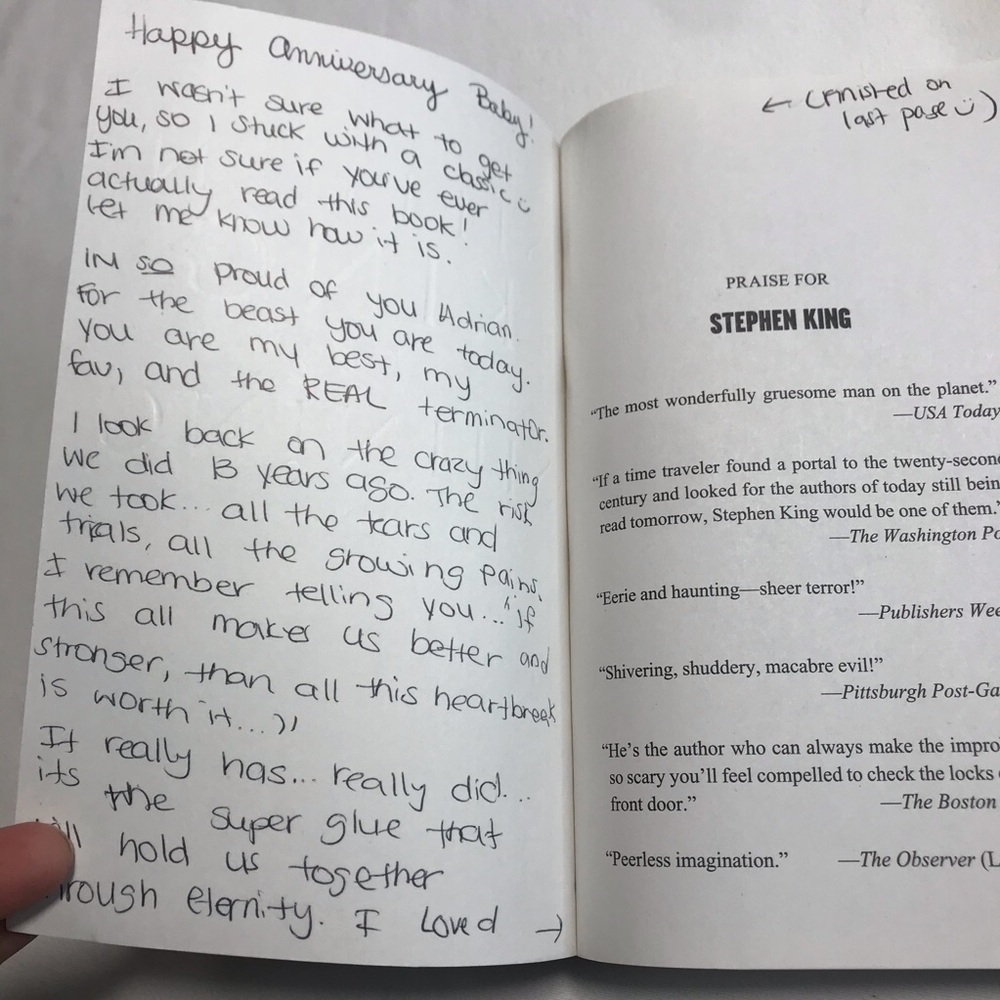 Happy Anniversary Baby!
I wasn't sure what to get
you, so I stuck with a classic
I'm not sure if you've ever
actually read this book!
Let me know how it is.
IM SO proud of you Adrian.
For the beast you are today.
You are my best, my
fav, and the REAL terminator.
I look back on the crazy thing
we did 13 years ago. The risk
we took... all the tears and
trials, all the growing pains.
I remember telling you... "if
this all makes us better and
stronger, than all this heartbreak
is worth it..."
It really has... really did...
its the super glue that
hold us together
through eternity. I Loved →
← (finished on
last page)
PRAISE FOR
STEPHEN KING
"The most wonderfully gruesome man on the planet."
—USA Today
"If a time traveler found a portal to the twenty-second
century and looked for the authors of today still bein
read tomorrow, Stephen King would be one of them."
—The Washington Po
"Eerie and haunting—sheer terror!"
—Publishers Wee
"Shivering, shuddery, macabre evil!"
—Pittsburgh Post-Ga
"He's the author who can always make the impro
so scary you'll feel compelled to check the locks
front door."
—The Boston
"Peerless imagination."
—The Observer (L